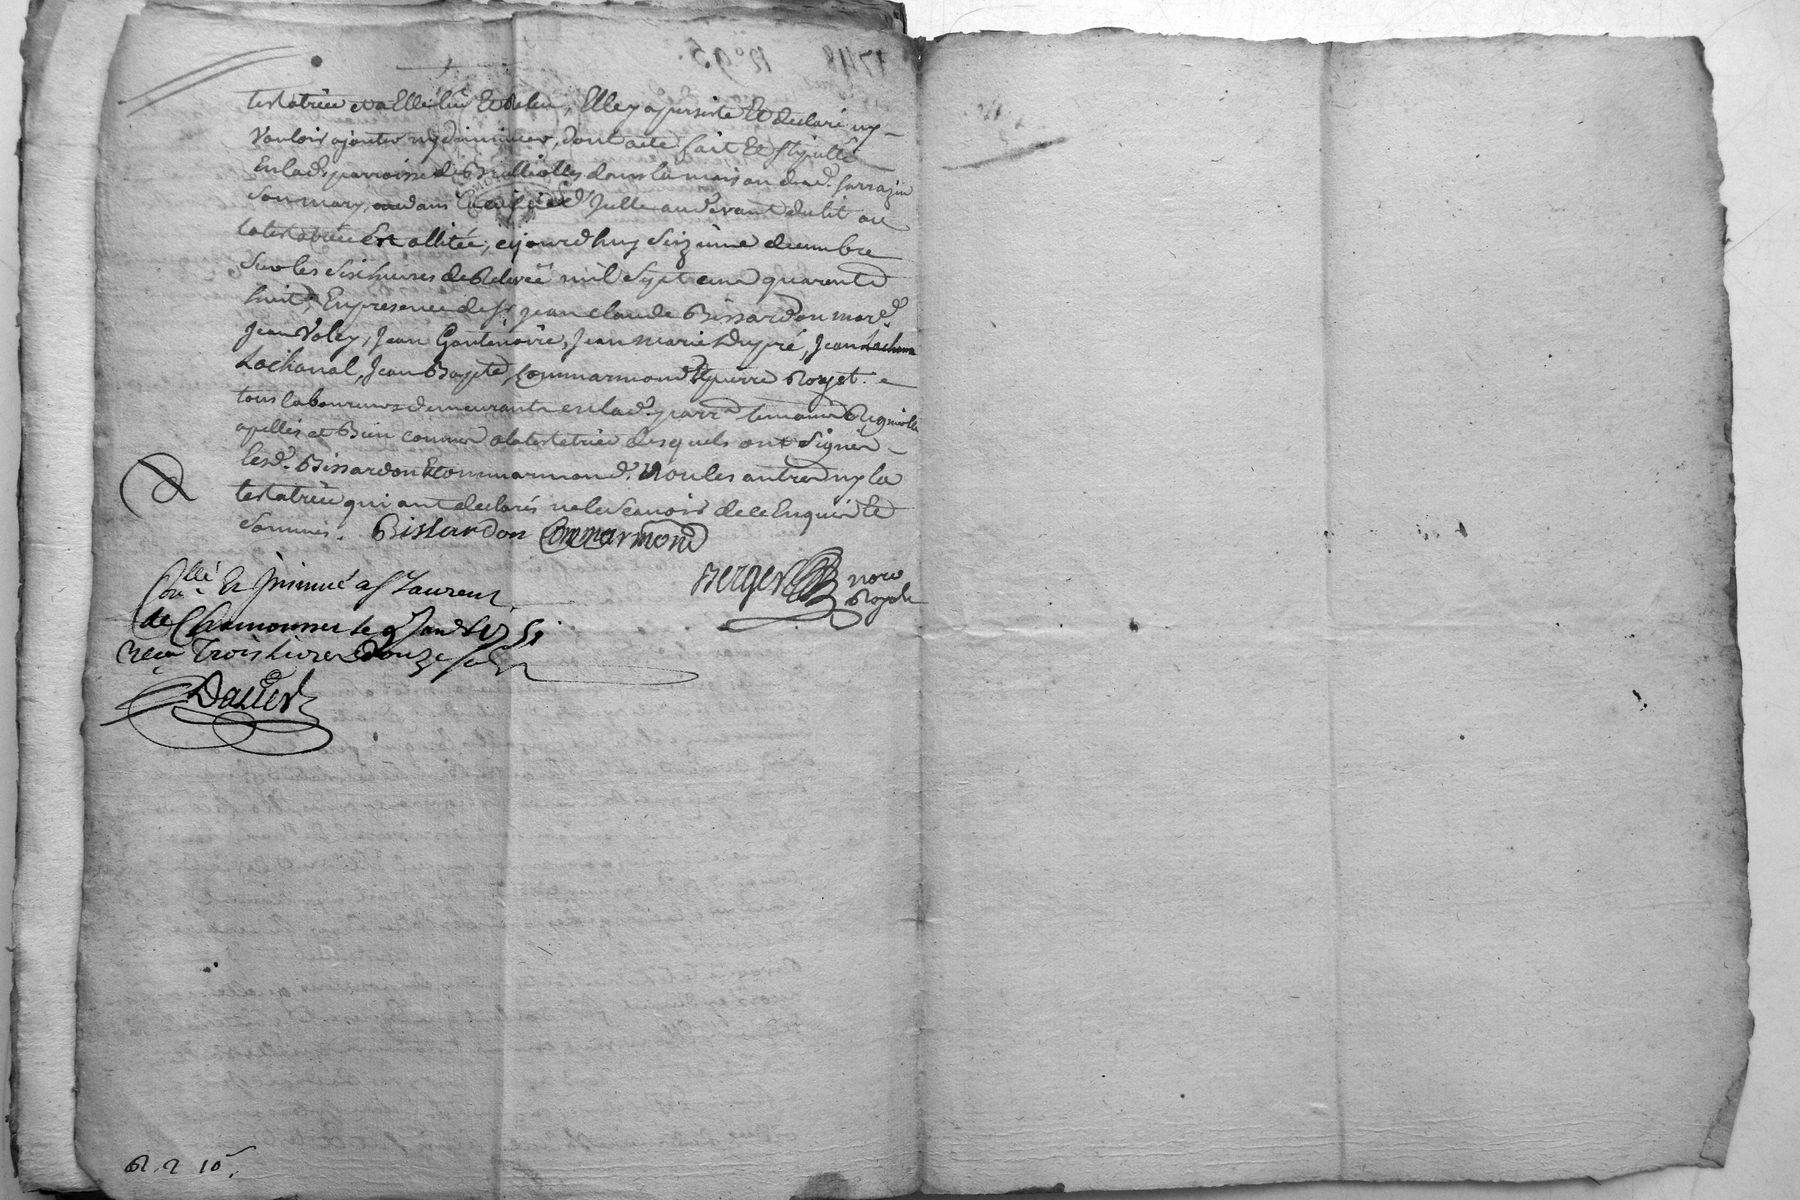 testatrice et a Elle leu Et releu, Elle y a persisté Et declaré ny
vouloir ajouter ny diminuer, dont acte fait Et stipullé
En lad. parroisse de Brulliolles dans la maison dud. Sarrazin
Son mary, au devant du lit ou
la testatrice Est allitée, cejourd'huy Seizieme decembre
Sur les Six heures de Relevée mil Sept cent quarente
huit, En presence de Sr jean claude Bissardon mard.
jean Voley, Jean Gontenoire, Jean marie Dupré, Jean Lachana
Lachanal, Jean Bapte Commarmond Et pierre Rouget
tous laboureurs demeurants en lad. parr. temoins Requis
apellés et Bien connus a la testatrice desquels ont Signés
lesd. Bissardon Et Commarmond. Non les autres ny la
testatrice qui ont declarés ne le Scavoir de ce Enquis Et
Sommés. Bissardon Commarmond
Berger nore
Royal
Collé Et Jnsinué a St Laurent
de Chamousset le 9 Janv. 1751
Receu Trois Livres douze sols
Dallier
R. 2 10s.